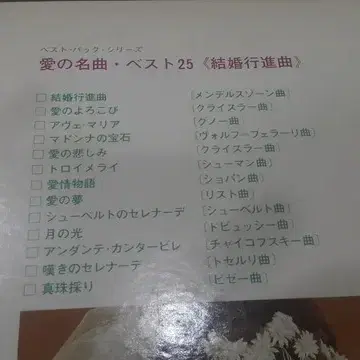 ベスト・パック・シリーズ
愛の名曲・ベスト25《結婚行進曲》
□結婚行進曲 〔メンデルスゾーン曲〕
□愛のよろこび 〔クライスラー曲〕
□アヴェ・マリア 〔グノー曲〕
□マドンナの宝石 〔ヴォルフ=フェラーリ曲〕
□愛の悲しみ 〔クライスラー曲〕
□トロイメライ 〔シューマン曲〕
□愛情物語 〔ショパン曲〕
□愛の夢 〔リスト曲〕
□シューベルトのセレナーデ 〔シューベルト曲〕
□月の光 〔ドビュッシー曲〕
□アンダンテ・カンタービレ 〔チャイコフスキー曲〕
□嘆きのセレナーデ 〔トセルリ曲〕
□真珠採り 〔ビゼー曲〕